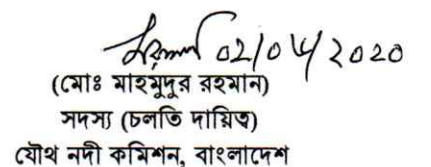 02/04/2020
(মোঃ মাহমুদুর রহমান)
সদস্য (চলতি দায়িত্ব)
যৌথ নদী কমিশন, বাংলাদেশ